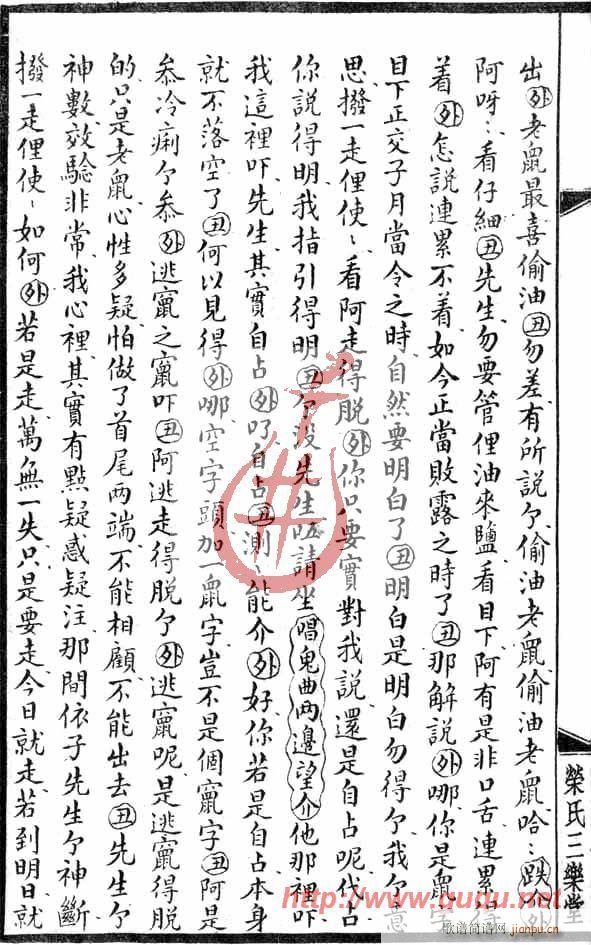 出外老鼠最喜偷油丑勿差有所説个偷油老鼠偷油老鼠哈〻跌介外
阿呀〻看仔細丑先生勿要管俚油來鹽看目下阿有是非口舌連累得
着外怎説連累不着如今正當敗露之時了丑那解説外哪你是鼠字
目下正交子月當令之時自然要明白了丑明白是明白勿得个我个意
思撥一走俚使〻看阿走得脱外你只要實對我説還是自占呢代占
你説得明我指引得明丑个没先生請坐唱鬼曲两邊望介他那裡吓
我這裡吓先生其實自占外吖自占丑測〻能介外好你若是自占本身
就不落空了丑何以見得外哪空字頭加一鼠字豈不是個竄字丑阿是
叅冷痢个叅外逃竄之竄吓丑阿逃走得脱个外逃竄呢是逃竄得脱
的只是老鼠心性多疑怕做了首尾两端不能相顧不能出去丑先生个
神數效驗非常我心裡其實有點疑惑疑注那間依子先生个神斷
撥一走俚使〻如何外若是走萬無一失只是要走今日就走若到明日就
榮氏三樂堂
http://www.ququ.net
歌谱简谱网
jianpu.cn